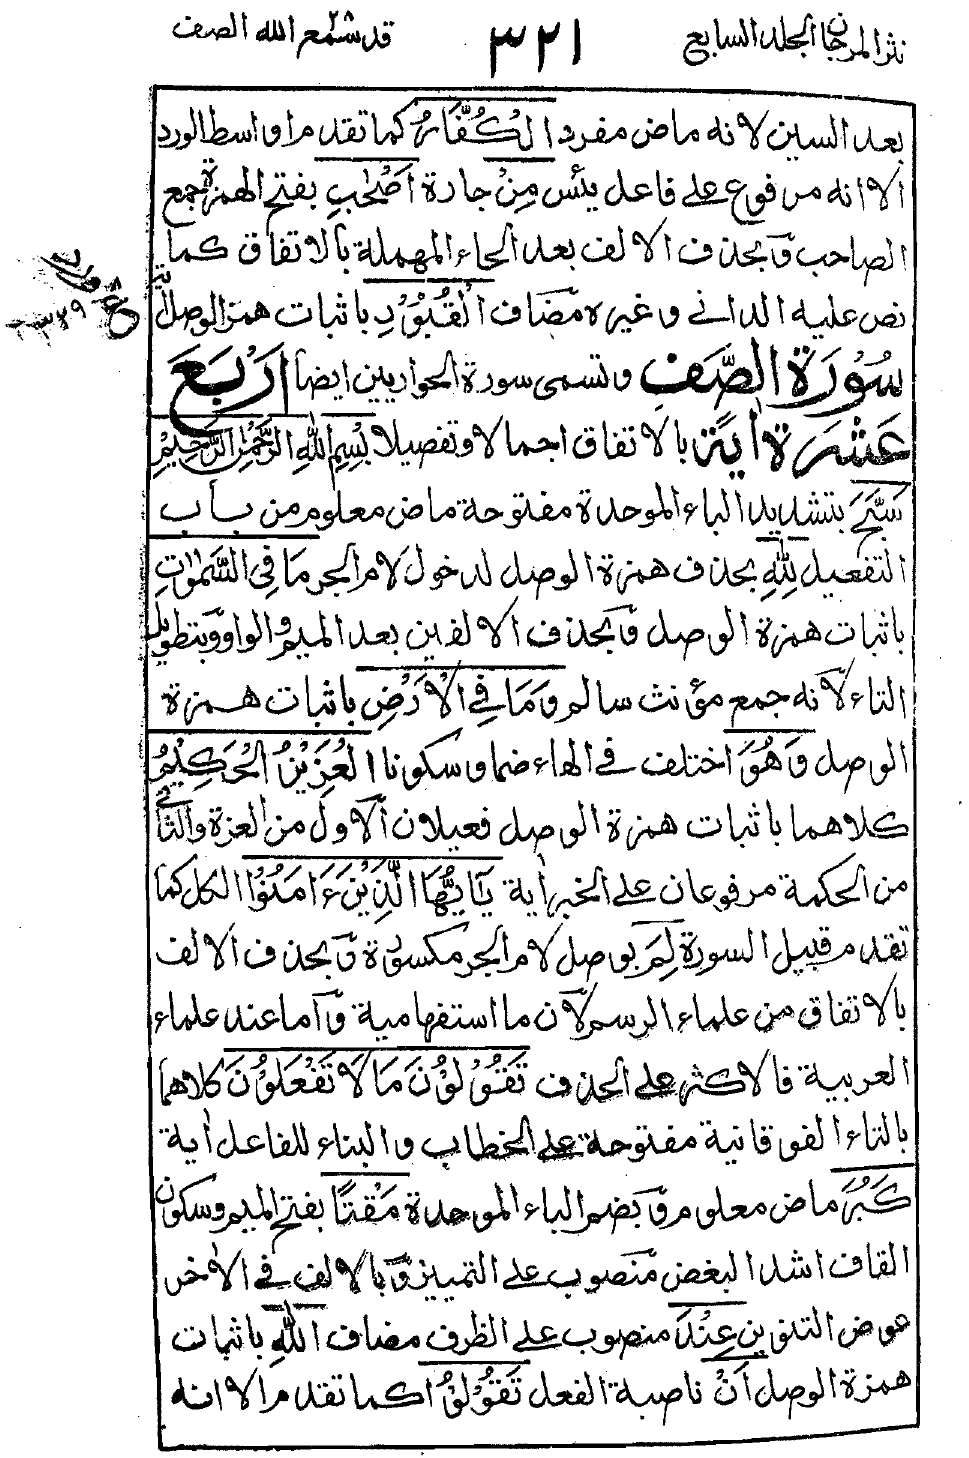 نثر المرجان الجلد السابع ٣٢١ قد سمع الله ٢٨ الصف
بعد السين لانه ماض مفرد الْكُفَّارُ كما تقدم اواسط الورد
الا انه مرفوع على فاعل يئس مِنْ جارة اَصْحٰبِ بفتح الهمزة جمع
الصاحب وبحذف الالف بعد الحاء المهملة بالاتفاق كما
نص عليه الداني وغيره مضاف الْقُبُوْرِ باثبات همزة الوصل
سُوْرَةُ الصَّفِ وتسمى سورة الحواريين ايضا اَرْبَعَ
عَشْرَةَ اٰيَةً بالاتفاق اجمالا وتفصيلا بِسْمِ اللهِ الرَّحْمٰنِ الرَّحِيْمِ
سَبَّحَ بتشديد الباء الموحدة مفتوحة ماض معلوم من باب
التفعيل لِلّٰهِ بحذف همزة الوصل لدخول لام الجر مَا فِى السَّمٰوٰتِ
باثبات همزة الوصل وبحذف الالفين بعد الميم والواو وبتطويل
التاء لانه جمع مؤنث سالم وَمَا فِي الْاَرْضِ باثبات همزة
الوصل وَهُوَ اختلف في الهاء ضما وسكونا الْعَزِيْزُ الْحَكِيْمُ
كلاهما باثبات همزة الوصل فعيلان الاول من العزة والثاني
من الحكمة مرفوعان على الخبر اٰية يٰٓاَيُّهَا الَّذِيْنَ ءَامَنُوْا الكل كما
تقدم قبيل السورة لِمَ بوصل لام الجر مكسورة وبحذف الالف
بالاتفاق من علماء الرسم لان ما استفهامية واما عند علماء
العربية فالاكثر على الحذف تَقُوْلُوْنَ مَا لَا تَفْعَلُوْنَ كلاهما
بالتاء الفوقانية مفتوحة على الخطاب والبناء للفاعل اٰية
كَبُرَ ماض معلوم وبضم الباء الموحدة مَقْتًا بفتح الميم وسكون
القاف اشد البغض منصوب على التمييز وبالالف في الاٰخر
عوض التنوين عِنْدَ منصوب على الظرف مضاف اللهِ باثبات
همزة الوصل اَنْ ناصبة الفعل تَقُوْلُوْا كما تقدم الا انه